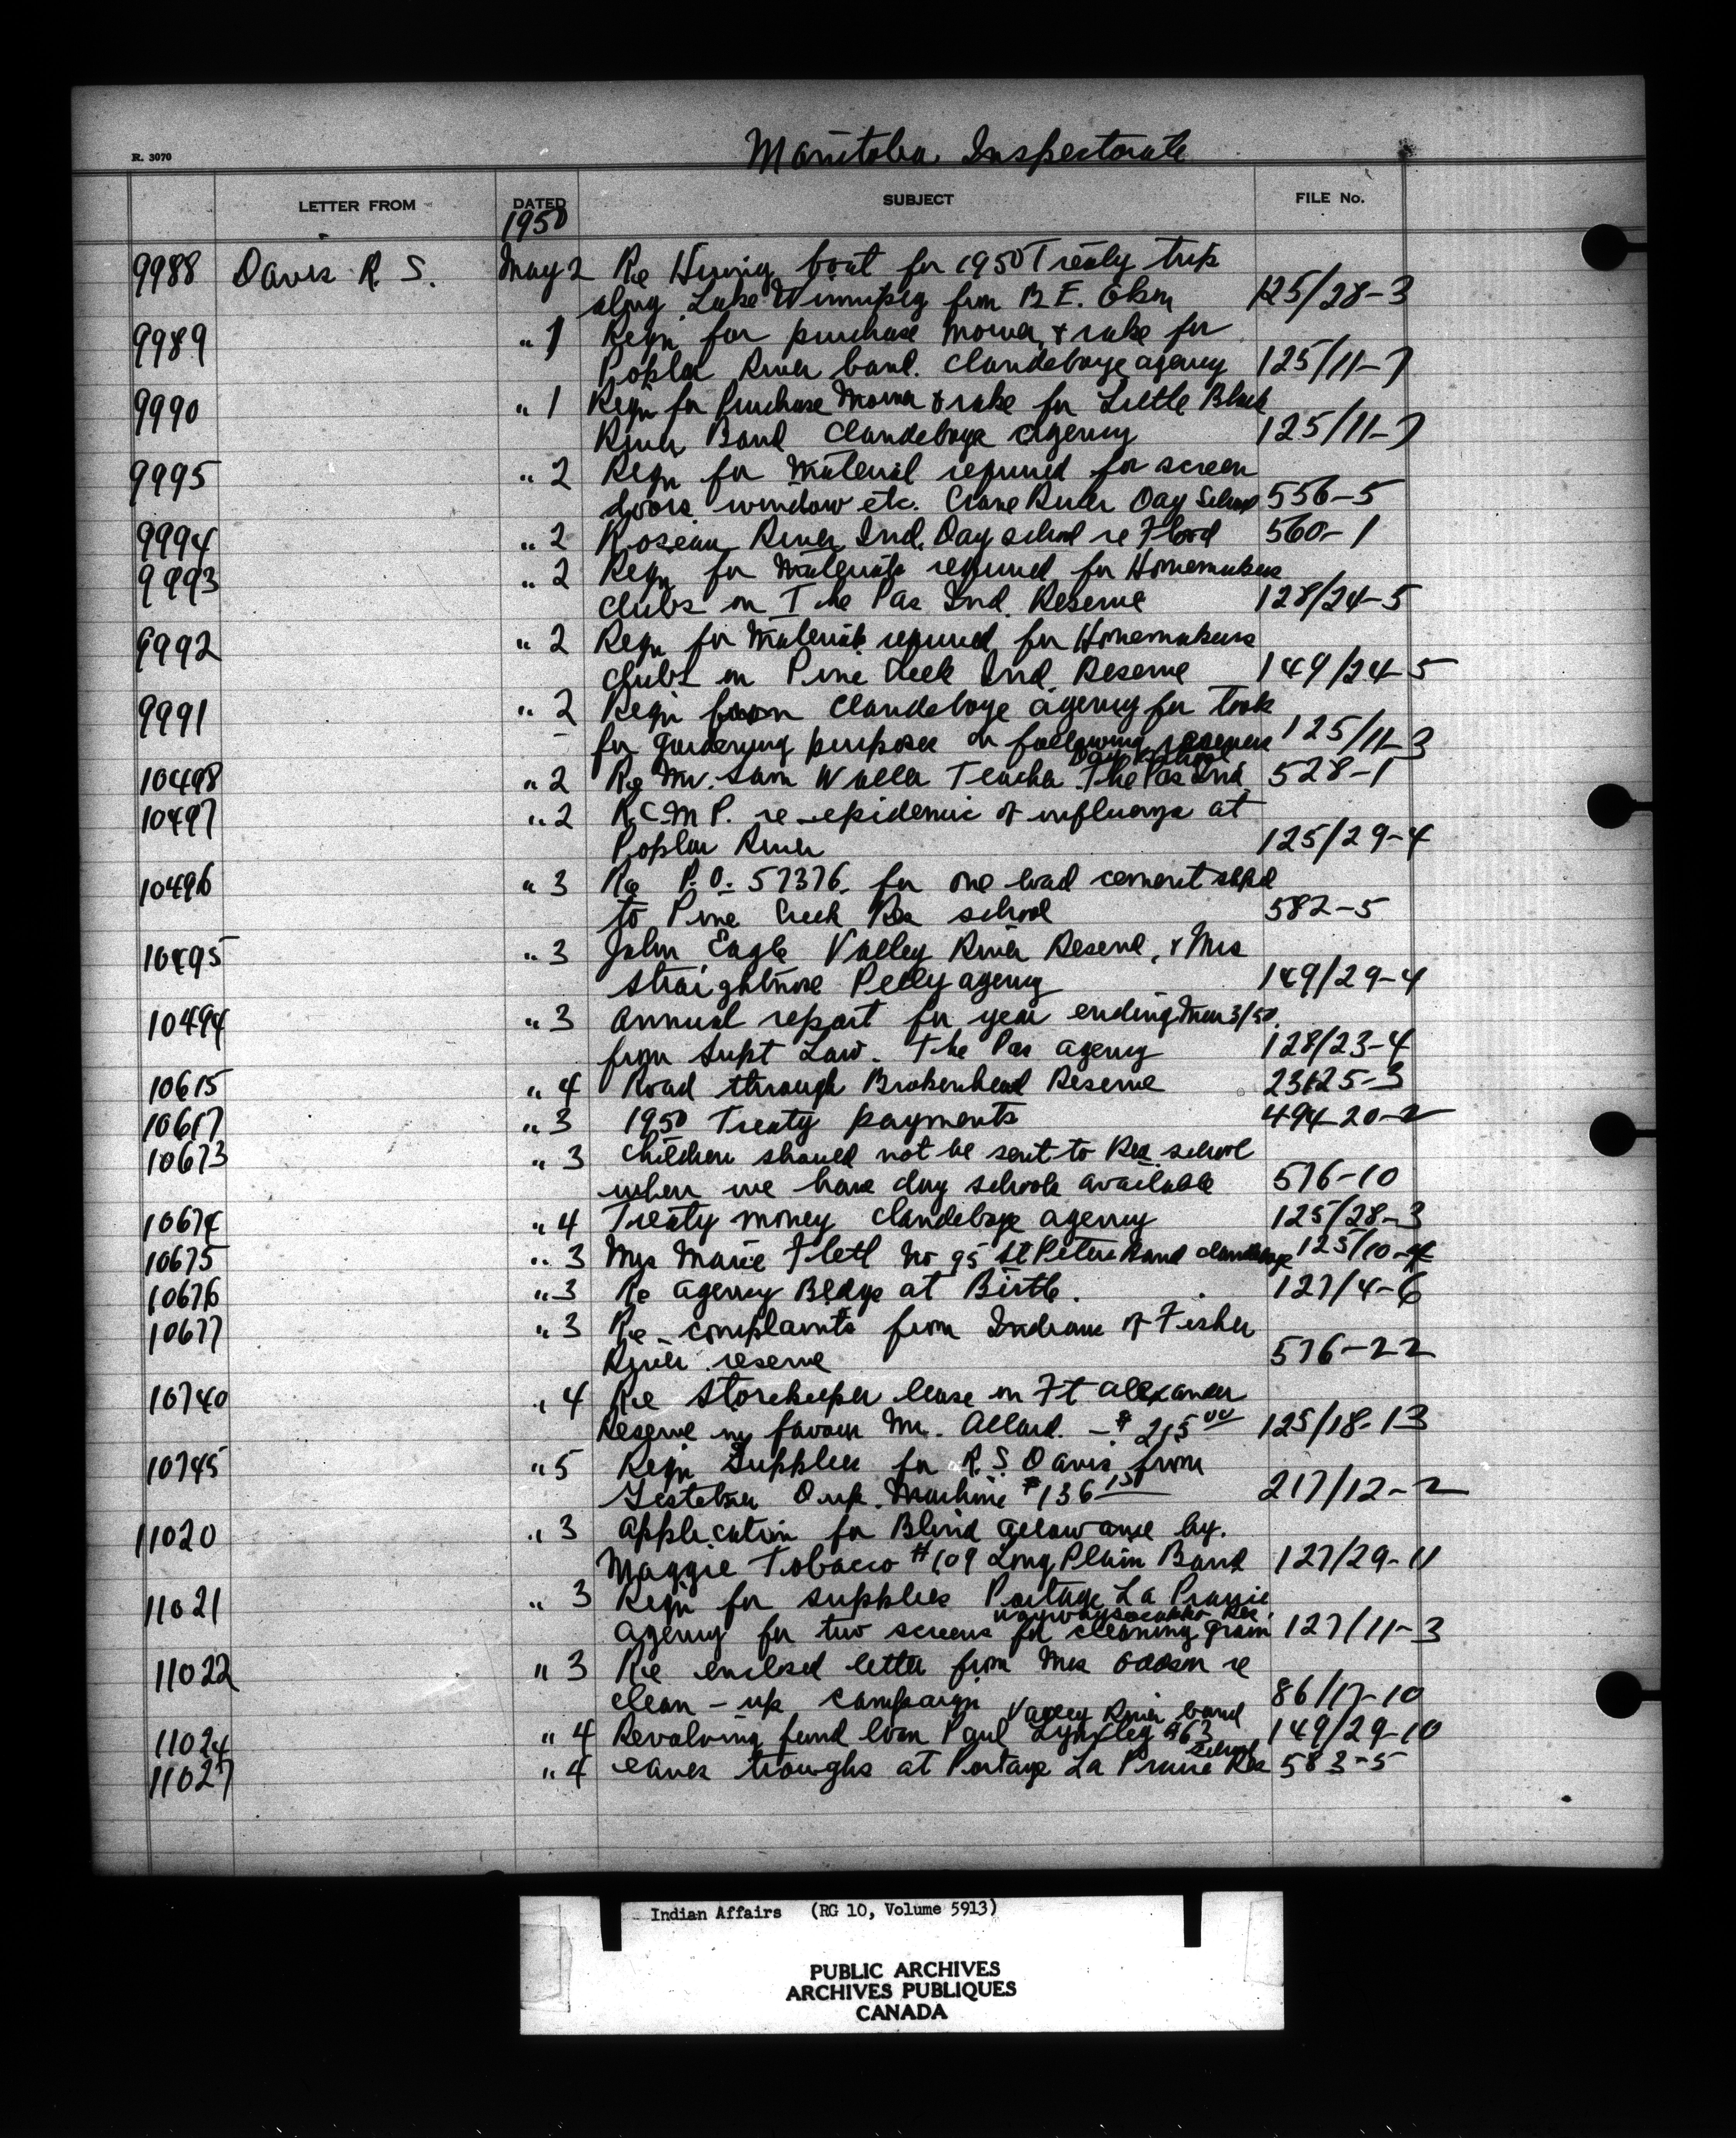 Manitoba Inspectorate
R. 3070
LETTER FROM DATED SUBJECT FILE No.
1950
9988 Davis R. S. May 2 Re Hiring boat for 1950 Treaty trip
along Lake Winnipeg from B E. Olson 125/28-3
9989 " 1 Reqn for purchase mower & rake for
Poplar River band. Clandeboye agency 125/11-7
9990 " 1 Reqn for Purchase Mower & rake for Little Black
River Band Clandeboye agency 125/11-7
9995 " 2 Reqn for Material required for screen
doors window etc. Crane River Day School 556-5
9994 " 2 Roseau River Ind. Day school re Flood 560-1
9993 " 2 Reqn for Materials required for Homemakers
clubs on The Pas Ind. Reserve 128/24-5
9992 " 2 Reqn for Materials required for Homemakers
clubs on Pine Creek Ind. Reserve 149/24-5
9991 " 2 Reqn from Clandeboye agency for tools
for gardening purposes on following reserves 125/11-3
Day School
10498 " 2 Re Mr. Sam Waller Teacher The Pas Ind 528-1
10497 " 2 R.C.M.P. re epidemic of influenza at
Poplar River 125/29-4
10496 " 3 Re P.O. 57376. for one load cement
to Pine Creek Res school 582-5
10495 " 3 John Eagle Valley River Reserve, & Mrs
Straightnose Pelly agency 149/29-4
10494 " 3 Annual report for year ending Mar 3/50
from Supt Law. The Pas agency 128/23-4
10615 " 4 Road through Brokenhead Reserve 23125-3
10617 " 3 1950 Treaty payments 494-20-2
10673 " 3 Children should not be sent to Res. school
when we have day schools available 576-10
10674 " 4 Treaty money Clandeboye agency 125/28-3
10675 " 3 Mrs Marie Flett No 95 St Peters Band Clandeboye 125/10-4
10676 " 3 Re agency Bldgs at Birtle. 127/4-6
10677 " 3 Re complaints from Indians of Fisher
River reserve 576-22
10740 " 4 Re Storekeeper lease on Ft Alexander
Reserve in favour Mr. Allard. - $ 215 00 125/18-13
10745 " 5 Reqn Supplies for R.S. Davis from
Gestetner Dup. Machine $136 150 217/12-2
11020 " 3 Application for Blind allowance by.
Maggie Tobacco #109 Long Plain Band 127/29-11
11021 " 3 Reqn for supplies Portage La Prairie
agency for two screens for cleaning grain 127/11-3
11022 " 3 Re enclosed letter from Mrs Oddson re
clean-up campaign 86/17-10
Valley River band
11024 " 4 Revolving fund loan Paul Lynxleg #63 149/29-10
School
11027 " 4 eaves troughs at Portage La Prairie Res 583-5
Indian Affairs (RG 10, Volume 5913)
PUBLIC ARCHIVES
ARCHIVES PUBLIQUES
CANADA